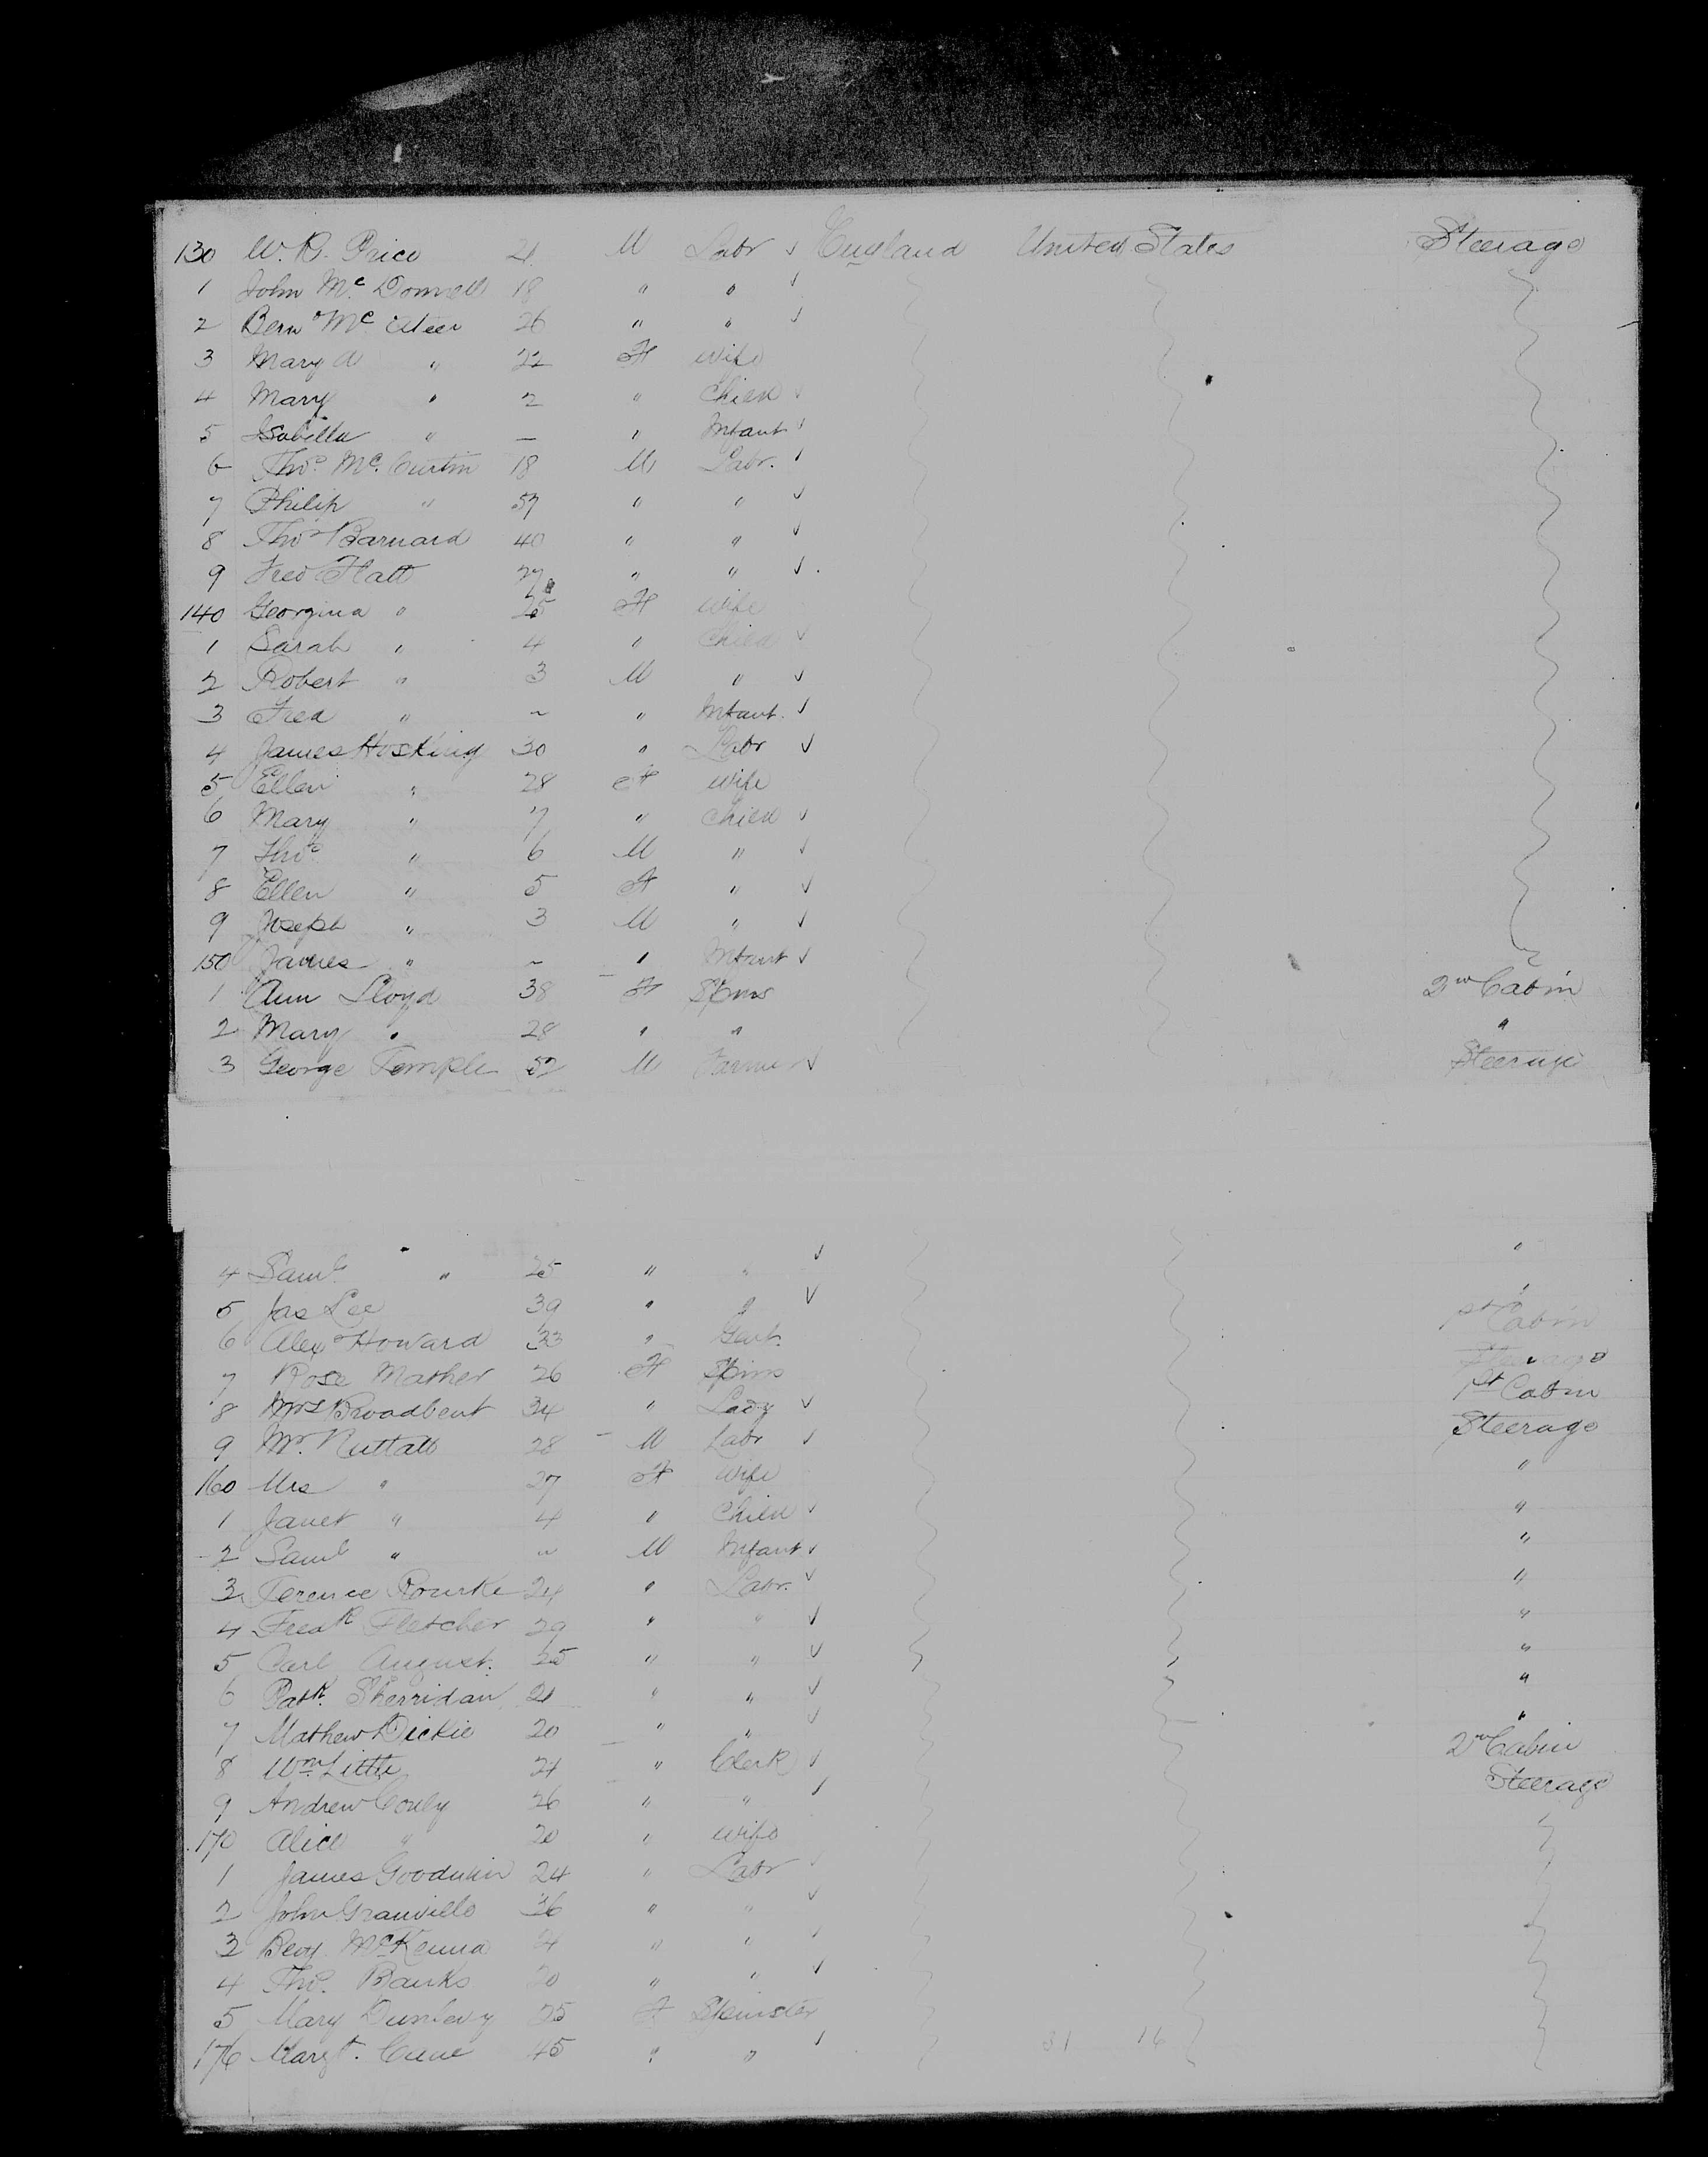 130 W. R. Price 21 M Labr ✓ England United States Steerage
1 John Mc Donnell 18 " " ✓
2 Bernd Mc Ateer 26 " " ✓
3 Mary A " 22 F Wife
4 Mary " 2 " Child ✓
5 Isabella " — " Infant ✓
6 Thos. Mc. Curtin 18 M Labr. ✓
7 Philip " 57 " " ✓
8 Thos Barnard 40 " " ✓
9 Fred Flatt 27 " " ✓
140 Georgina " 25 F Wife
1 Sarah " 4 " Child ✓
2 Robert " 3 M " ✓
3 Fred " ~ " Infant. ✓
4 James Hosking 30 " Labr ✓
5 Ellen " 28 F Wife
6 Mary " 7 " Child ✓
7 Thos. " 6 M " ✓
8 Ellen " 5 F " ✓
9 Joseph " 3 M " ✓
150 James " ~ " Infant ✓
1 Ann Lloyd 38 F Spins 2nd Cabin
2 Mary " 28 " " "
3 George Temple 52 M Farmer ✓ Steerage
4 Saml. " 25 " " ✓ "
5 Jas Lee 39 " " ✓ "
6 Alexr Howard 33 " Gent. 1st Cabin
7 Rose Mather 26 F Spins Steerage
8 Mrs Broadbent 34 " Lady ✓ 1st Cabin
9 Mr. Nuttall 28 M Labr ✓ Steerage
160 Mrs " 27 F Wife "
1 Janet " 4 " Child ✓ "
2 Saml " ~ M Infant ✓ "
3 Terence Rourke 24 " Labr. ✓ "
4 Fredk Fletcher 29 " " ✓ "
5 Carl August. 25 " " ✓ "
6 Patk. Sherridan 21 " " ✓ "
7 Mathew Dickie 20 " " ✓ "
8 Wm Little 24 " Clerk ✓ 2nd Cabin
9 Andrew 26 " " ✓ Steerage
170 Alice " 20 " Wife
1 James Goodwin 24 " Labr ✓
2 John Granville 36 " " ✓
3 Mc Kenna " " ✓
4 Thos. Banks 20 " " ✓
5 Mary Dunlevy 25 F Spinster
176 Margt. 45 " " ✓ 31 16